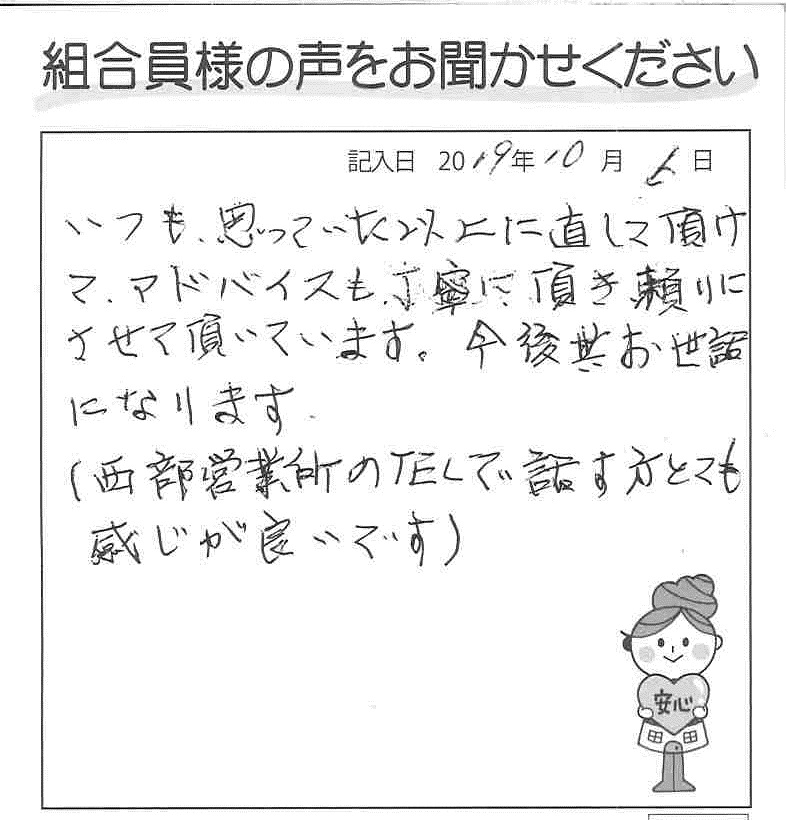 組合員様の声をお聞かせください
記入日 2019年10月6日
いつも、思っていた以上に直して頂け
て、アドバイスも、丁寧に頂き頼りに
させて頂いています。今後共お世話
になります.
(西部営業所のTELで話す方とても
感じが良いです)
安心